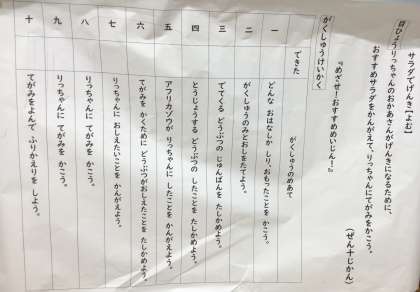 サラダでげんき【よむ】
りっちゃんのおかあさんがげんきになるために、
おすすめサラダをかんがえて、りっちゃんにてがみをかこう。
（ぜん十じかん）
『めざせ！おすすめめいじん！』
がくしゅうけいかく
できた
がくしゅうのめあて
一
どんな おはなしか しり、おもったことを かこう。
がくしゅうのみとおしをたてよう。
二
でてくる どうぶつの じゅんばんを たしかめよう。
三
とうじょうする どうぶつの したことを たしかめよう。
四
アフリカゾウが りっちゃんに したことを かんがえよう。
五
てがみを かくために どうぶつがおしえたことを たしかめよう。
六
りっちゃんに おしえたいことを かんがえよう。
七
りっちゃんに てがみを かこう。
八
りっちゃんに てがみを かこう。
九
てがみをよんで ふりかえりを しよう。
十